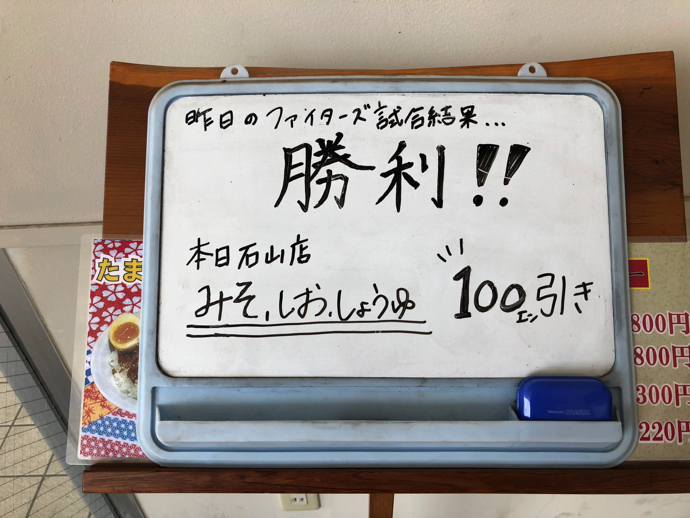 昨日のファイターズ試合結果...
勝利!!
本日石山店
みそ、しお、しょうゆ 100エン引き
たま
ー
800円
800円
300円
220円